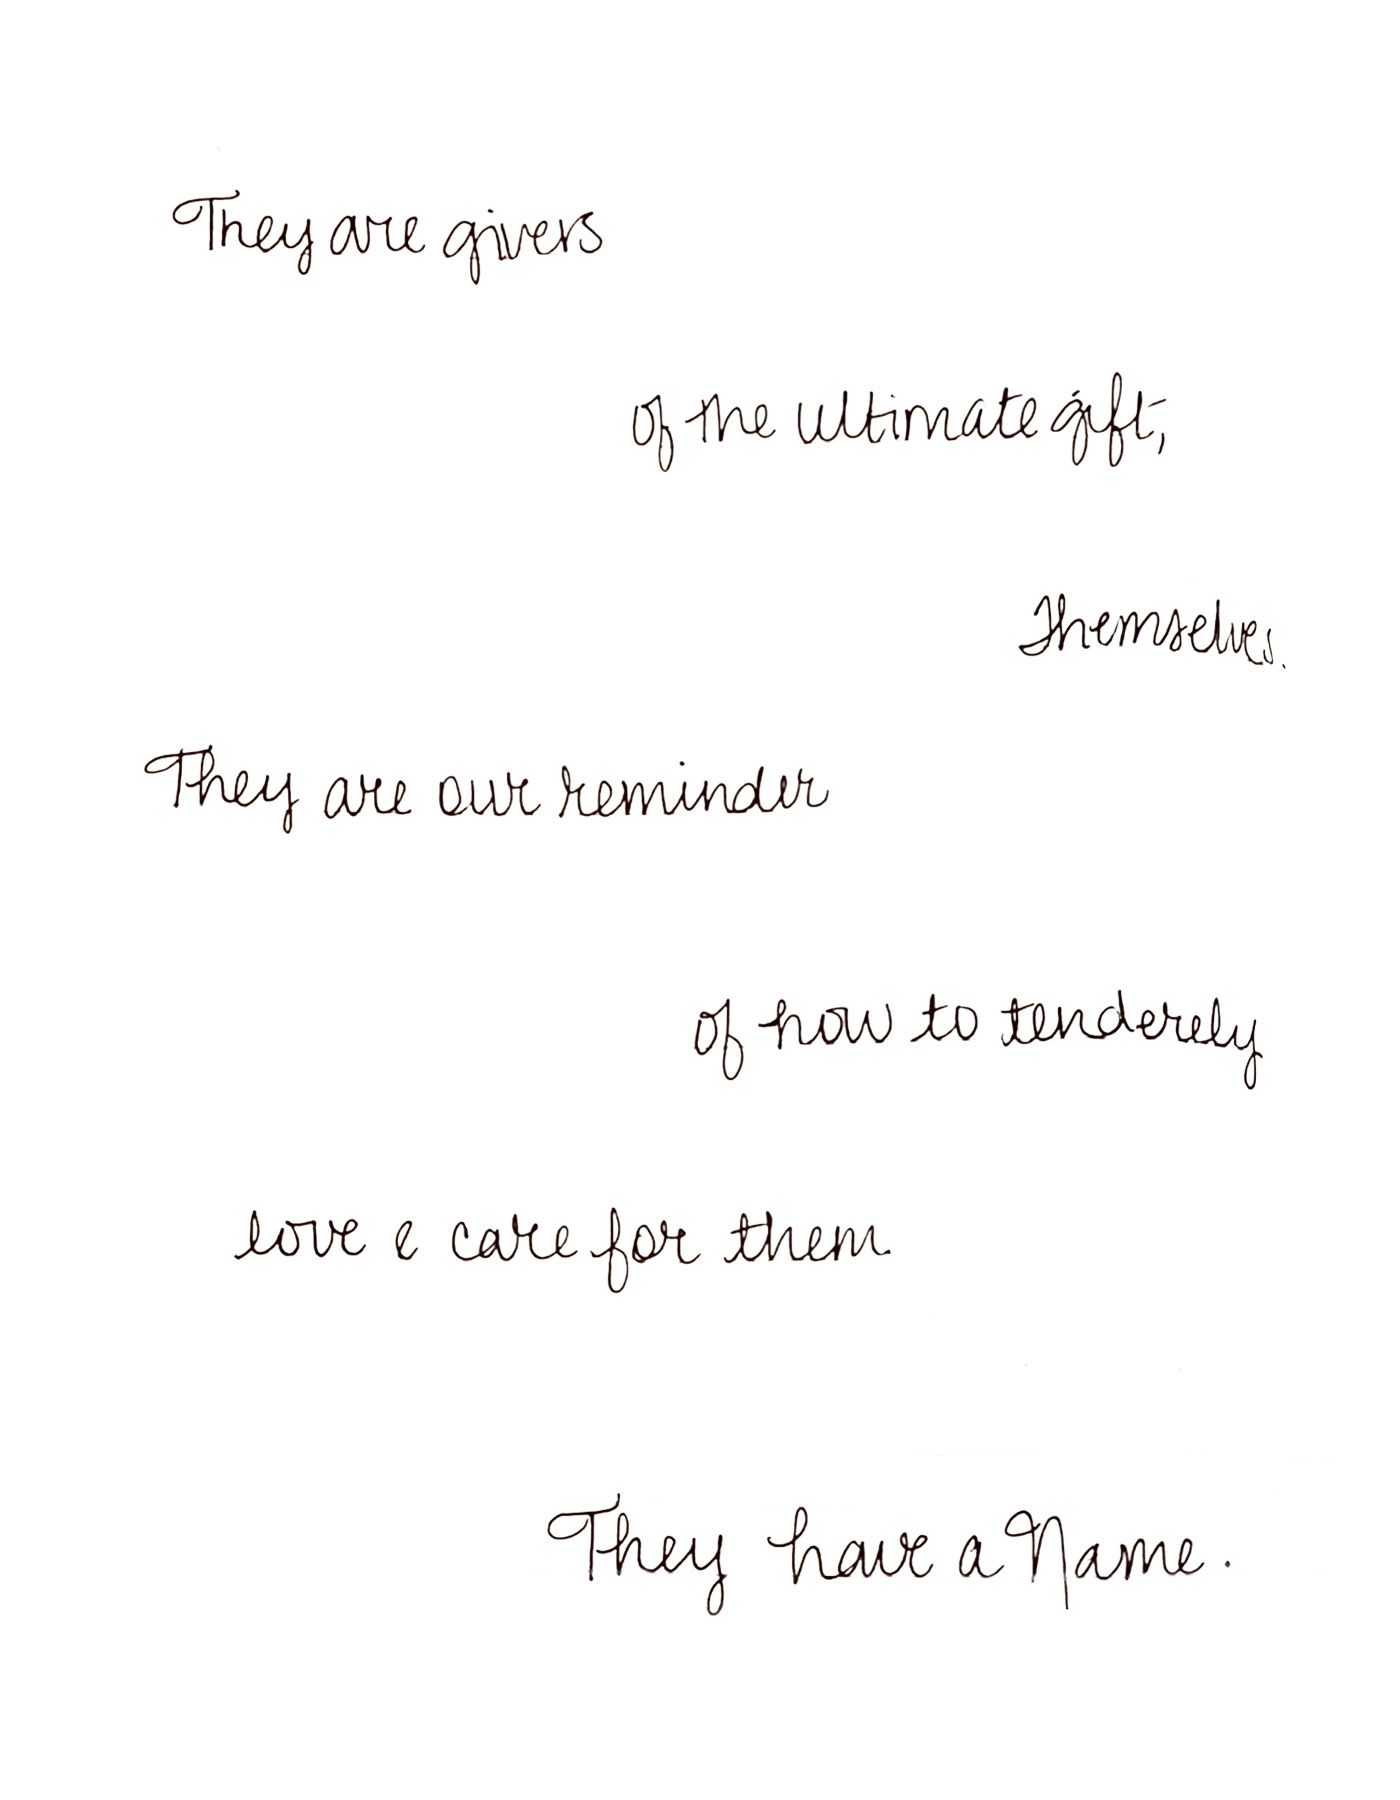 They are givers
of the ultimate gift,
Themselves.
They are our reminder
of how to tenderely
love & care for them.
They have a Name.